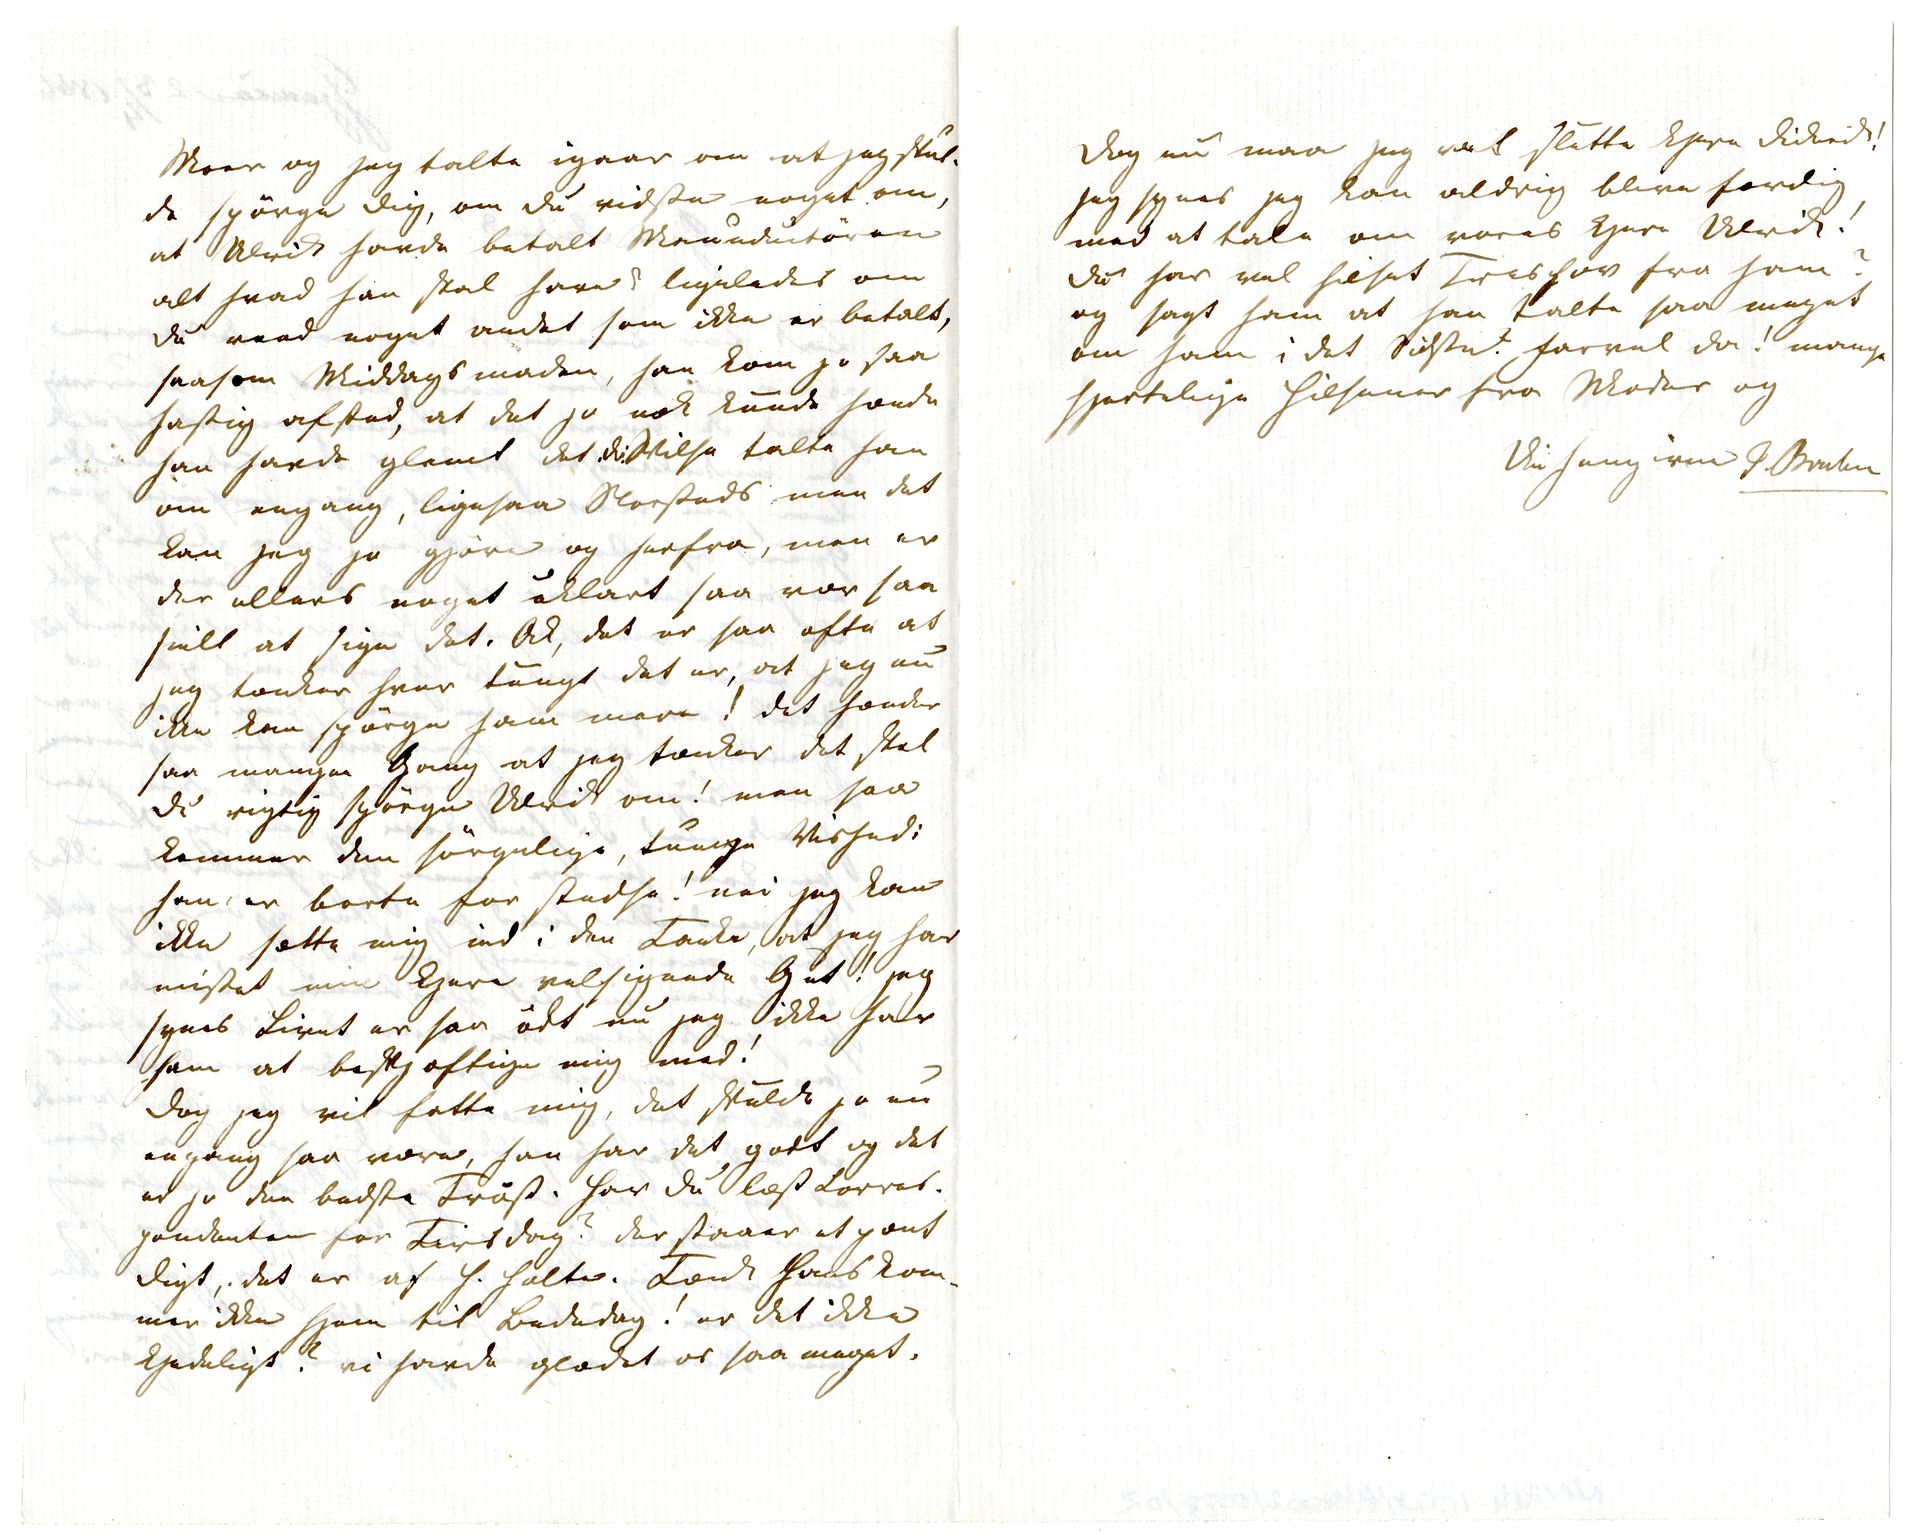 Moer og jeg talte igaar om at jeg skul-
de spörge Dig, om Du vidste noget om,
at Ulrik havde betalt Manuducören
alt hvad han skal have? ligeledes om
Du veed noget andet som ikke er betalt,
saasom Middagsmaden, han kom jo saa
hastig afsted, at det jo nok kunde hænde
han havde glemt det. Wilse talte han
om engang, ligesaa men det
kan jeg jo gjöre og herfra, men er
der ellers noget uklart saa vær saa
snill at sige det. Ak, det er saa ofte at
jeg tænker hvor tungt det er, at jeg nu
ikke kan spörge ham mere! det hænder
saa mangen Gang at jeg tænker det skal
Du rigtig spörge Ulrik om! men saa
kommer den sörgelige, tunge Vished:
han er borte for stedse! nei jeg kan
ikke sætte mig ind i den Tanke, at jeg har
mistet min kjære velsignede Gut! jeg
synes Livet er saa ödt nu jeg ikke har
ham at beskjæftige mig med!
Dog jeg vil fatte mig, det skulde jo nu
engang saa være, han har det godt og det
er jo den bedste Tröst. Har Du læst Corres-
pondenten for Tirsdag? der staaer et pænt
Digt, det er af H. Holte. Tænk Hans kom-
mer ikke hjem til Bededag! er det ikke
kjedeligt? vi havde glædet os saa meget.
Dog nu maa jeg vel slutte kjære Diderik!
jeg synes jeg kan aldrig blive færdig
med at tale om vores kjære Ulrik!
Du har vel hilset Treschow fra ham?
og sagt ham at han talte saa meget
om ham i det Sidste? farvel da! mange
hjertelige Hilsener fra Moder og
Din hengivne